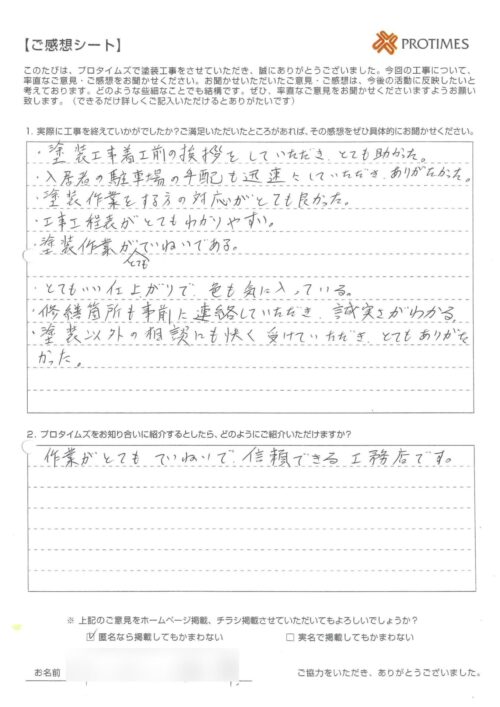 【ご感想シート】
PROTIMES
このたびは、プロタイムズで塗装工事をさせていただき、誠にありがとうございました。今回の工事について、
率直なご意見・ご感想をお聞かせください。お聞かせいただいたご意見・ご感想は、今後の活動に反映したいと
考えております。どのような些細なことでも結構です。ぜひ、率直なご意見をお聞かせくださいますようお願い
致します。（できるだけ詳しくご記入いただけるとありがたいです）
1. 実際に工事を終えていかがでしたか？ご満足いただいたところがあれば、その感想をぜひ具体的にお聞かせください。
・塗装工事着工前の挨拶をしていただき、とても助かった。
・入居者の駐車場の手配も迅速にしていただき、ありがたかった。
・塗装作業をする方の対応がとても良かった。
・工事工程表がとてもわかりやすい。
・塗装作業がとてもていねいである。
・とてもいい仕上がりで、色も気に入っている。
・修繕箇所も事前に連絡していただき、誠実さがわかる。
・塗装以外の相談にも快く受けていただき、とてもありがた
かった。
2. プロタイムズをお知り合いに紹介するとしたら、どのようにご紹介いただけますか？
作業がとてもていねいで、信頼できる工務店です。
※ 上記のご意見をホームページ掲載、チラシ掲載させていただいてもよろしいでしょうか？
☑ 匿名なら掲載してもかまわない □ 実名で掲載してもかまわない
お名前 ご協力をいただき、ありがとうございました。